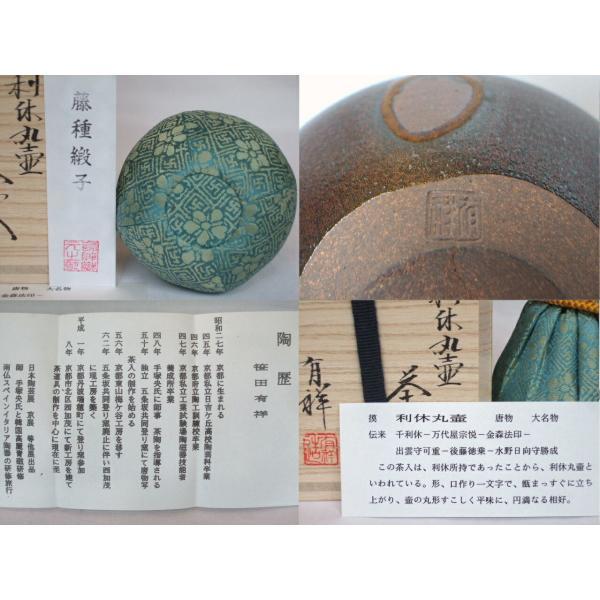 利休丸壷
藤種緞子
唐物　大名物
−金森法印−
陶歴
笹田有祥
昭和二七年　京都に生まれる
四五年　京都市立日吉ケ丘高校陶芸科卒業
四六年　京都府立陶工訓練校卒業
四七年　京都私立工業試験場陶磁器技能者
養成所卒業
四八年　手塚央氏に師事　茶陶を指導される
五十年　独立　五条坂共同登り窯にて唐物写
茶入の創作を始める
五六年　京都東山梅ケ谷工房を移す
六二年　五条坂共同登り窯廃止に伴い西加茂
に現工房を築く
平成　一年　京都丹波瑞穂町にて登り窯参加
八年　京都市北区西加茂にて新工房を建て
茶道具の創作を中心に現在に至
日本陶芸展　京展　等他展出品
師　手塚央氏と韓国高麗青磁研修
南仏スペインイタリア陶器の研修旅行
利休丸壷
茶
有祥
摸　利休丸壷　唐物　大名物
伝来　千利休−万代屋宗悦−金森法印−
出雲守可重−後藤徳乗−水野日向守勝成
この茶入は、利休所持であったことから、利休丸壷と
いわれている。形、口作り一文字で、甑まっすぐに立ち
上がり、壷の丸形すこしく平味に、円満なる相好。